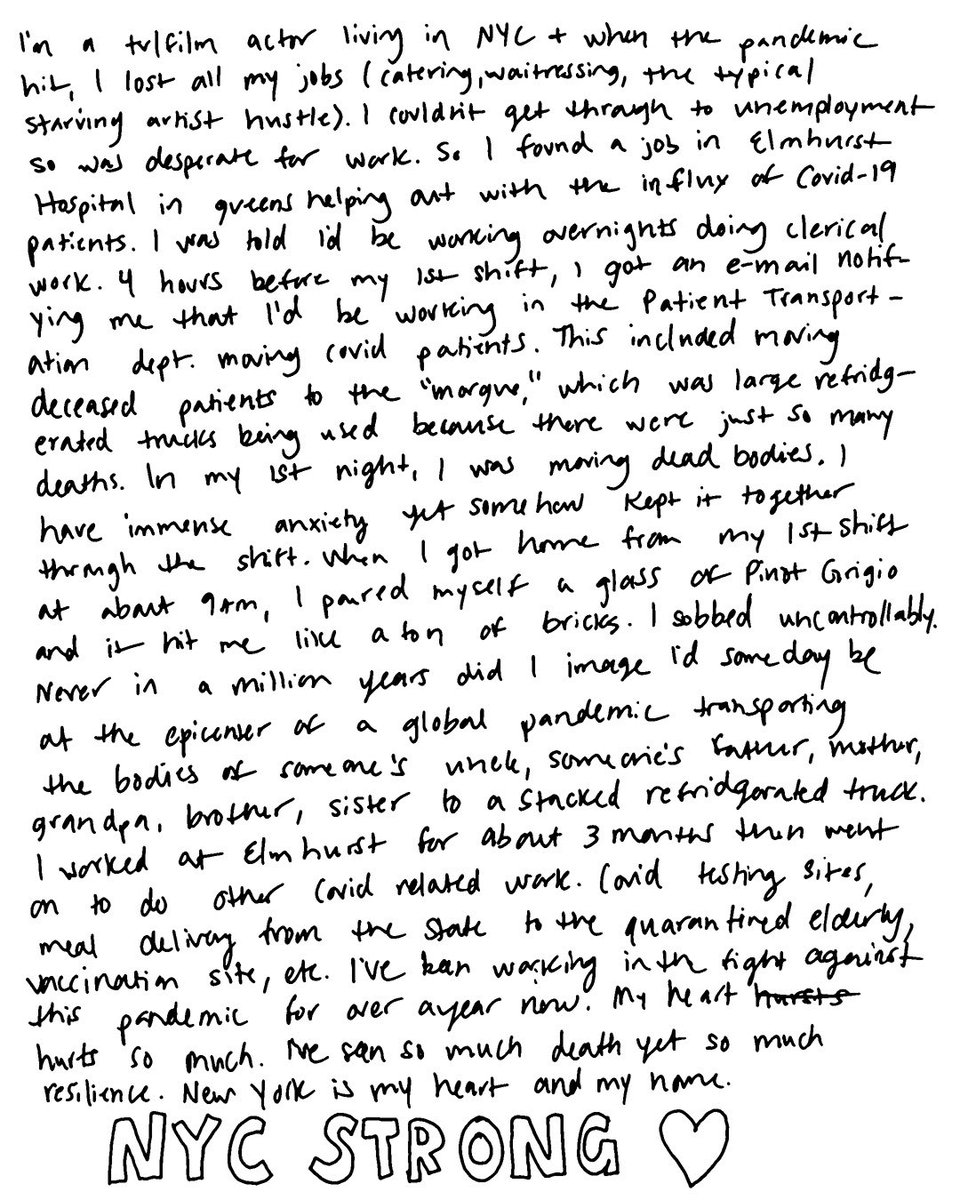 I'm a tv/film actor living in NYC + when the pandemic
hit, I lost all my jobs (catering, waitressing, the typical
starving artist hustle). I couldn't get through to unemployment
so was desperate for work. So I found a job in Elmhurst
Hospital in queens helping out with the influx of Covid-19
patients. I was told I'd be working overnights doing clerical
work. 4 hours before my 1st shift, I got an e-mail notif-
ying me that I'd be working in the Patient Transport-
ation dept. moving covid patients. This included moving
deceased patients to the "morgue," which was large refridg-
erated trucks being used because there were just so many
deaths. In my 1st night, I was moving dead bodies. I
have immense anxiety yet somehow kept it together
through the shift. When I got home from my 1st shift
at about 9am, I poured myself a glass of Pinot Grigio
and it hit me like a ton of bricks. I sobbed uncontrollably.
Never in a million years did I image I'd someday be
at the epicenter of a global pandemic transporting
the bodies of someone's uncle, someone's father, mother,
grandpa, brother, sister to a stacked refridgorated truck.
I worked at Elmhurst for about 3 months then went
on to do other Covid related work. Covid testing sites,
meal delivery from the state to the quarantined elderly,
vaccination site, etc. I've been working in the fight against
this pandemic for over a year now. My heart hursts
hurts so much. I've seen so much death yet so much
resilience. New York is my heart and my home.
NYC STRONG